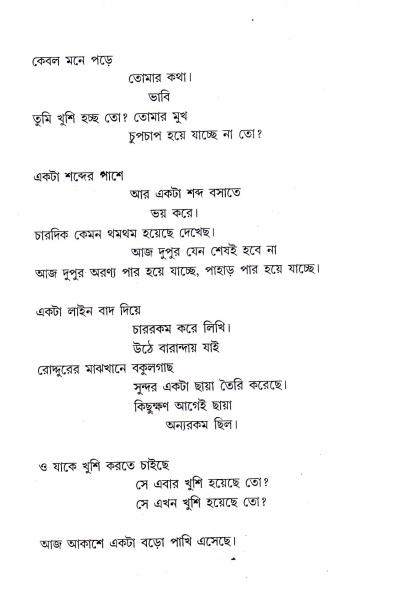 কেবল মনে পড়ে
তোমার কথা।
ভাবি
তুমি খুশি হচ্ছ তো? তোমার মুখ
চুপচাপ হয়ে যাচ্ছে না তো?
একটা শব্দের পাশে
আর একটা শব্দ বসাতে
ভয় করে।
চারদিক কেমন থমথম হয়েছে দেখেছ।
আজ দুপুর যেন শেষই হবে না
আজ দুপুর অরণ্য পার হয়ে যাচ্ছে, পাহাড় পার হয়ে যাচ্ছে।
একটা লাইন বাদ দিয়ে
চাররকম করে লিখি।
উঠে বারান্দায় যাই
রোদ্দুরের মাঝখানে বকুলগাছ
সুন্দর একটা ছায়া তৈরি করেছে।
কিছুক্ষণ আগেই ছায়া
অন্যরকম ছিল।
ও যাকে খুশি করতে চাইছে
সে এবার খুশি হয়েছে তো?
সে এখন খুশি হয়েছে তো?
আজ আকাশে একটা বড়ো পাখি এসেছে।